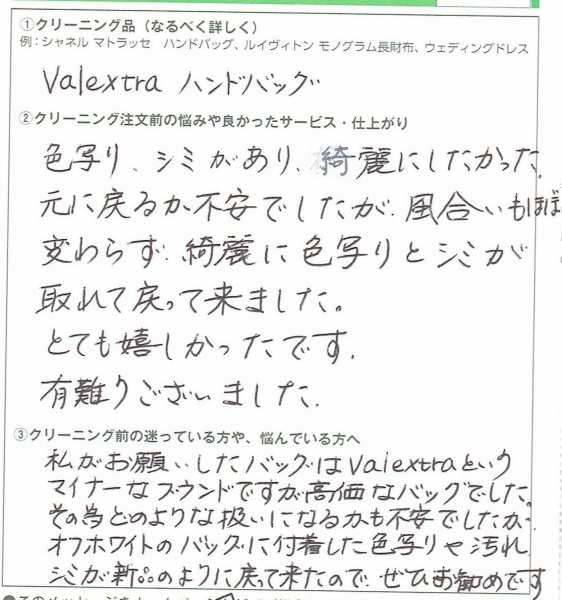 ①クリーニング品（なるべく詳しく）
例：シャネル マトラッセ　ハンドバッグ、ルイヴィトン モノグラム長財布、ウェディングドレス
Valextra ハンドバッグ
②クリーニング注文前の悩みや良かったサービス・仕上がり
色写り、シミがあり、綺麗にしたかった。
元に戻るか不安でしたが、風合いもほぼ
変わらず、綺麗に色写りとシミが
取れて戻って来ました。
とても嬉しかったです。
有難りございました。
③クリーニング前の迷っている方や、悩んでいる方へ
私がお願いしたバッグはValextraという
マイナーなブランドですが高価なバッグでした。
その為どのような扱いになるかも不安でしたが、
オフホワイトのバッグに付着した色写りや汚れ
シミが新品のように戻って来たので、ぜひお勧めです